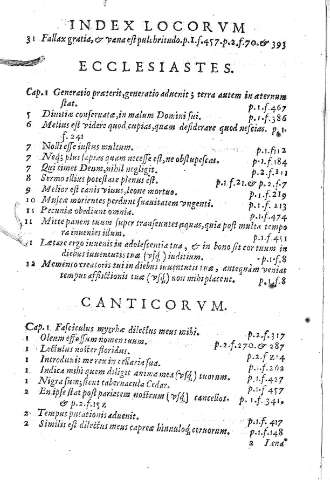 INDEX LOCORVM
31 Fallax gratia, & vana est pulchritudo. p.1.f.457. p.2.f.70. & 393
ECCLESIASTES.
Cap. 1 Generatio præterit, generatio aduenit; terra autem in æternum
stat. p.1.f.467
5 Diuitiæ conseruatæ, in malum Domini sui. p.1.f.386
6 Melius est videre quod cupias, quam desiderare quod nescias. p.1.
f.241
7 Noli esse iustus multum. p.1.f.112
7 Neq; plus sapias quam necesse est, ne obstupescas. p.1.f.184
7 Qui timet Deum, nihil negligit. p.2.f.211
8 Sermo illius potestate plenus est. p.1.f.21. & p.2.f.7
9 Melior est canis viuus, leone mortuo. p.1.f.219
10 Muscæ morientes perdunt suauitatem vnguenti. p.1.f.213
10 Pecuniæ obediunt omnia. p.1.f.474
11 Mitte panem tuum super transeuntes aquas, quia post multa tempo
ra inuenies illum. p.1.f.451
11 Lætare ergo iuuenis in adolescentia tua, & in bono sit cor tuum in
diebus iuuentutis tuæ (vsq;) iuditium. p.1.f.8
12 Memento creatoris tui in diebus iuuentutis tuæ, antequam veniat
tempus afflictionis tuæ (vsq;) non mihi placent. p.1.f.8
CANTICORVM.
Cap. 1 Fasciculus myrrhæ dilectus meus mihi. p.2.f.317
1 Oleum effusum nomen tuum. p.2.f.270. & 287
1 Lectulus noster floridus. p.2.f.274
1 Introduxit me rex in cellaria sua. p.1.f.262
1 Indica mihi quem diligit anima mea (vsq;) tuorum. p.1.f.427
1 Nigra sum; sicut tabernacula Cedar. p.1.f.457
2 En ipse stat post parietem nostrum (vsq;) cancellos. p.1.f.341.
& p.2.f.152
2 Tempus putationis aduenit. p.1.f.417
2 Similis est dilectus meus capreæ hinnuloq; ceruorum. p.1.f.148
2 Læua